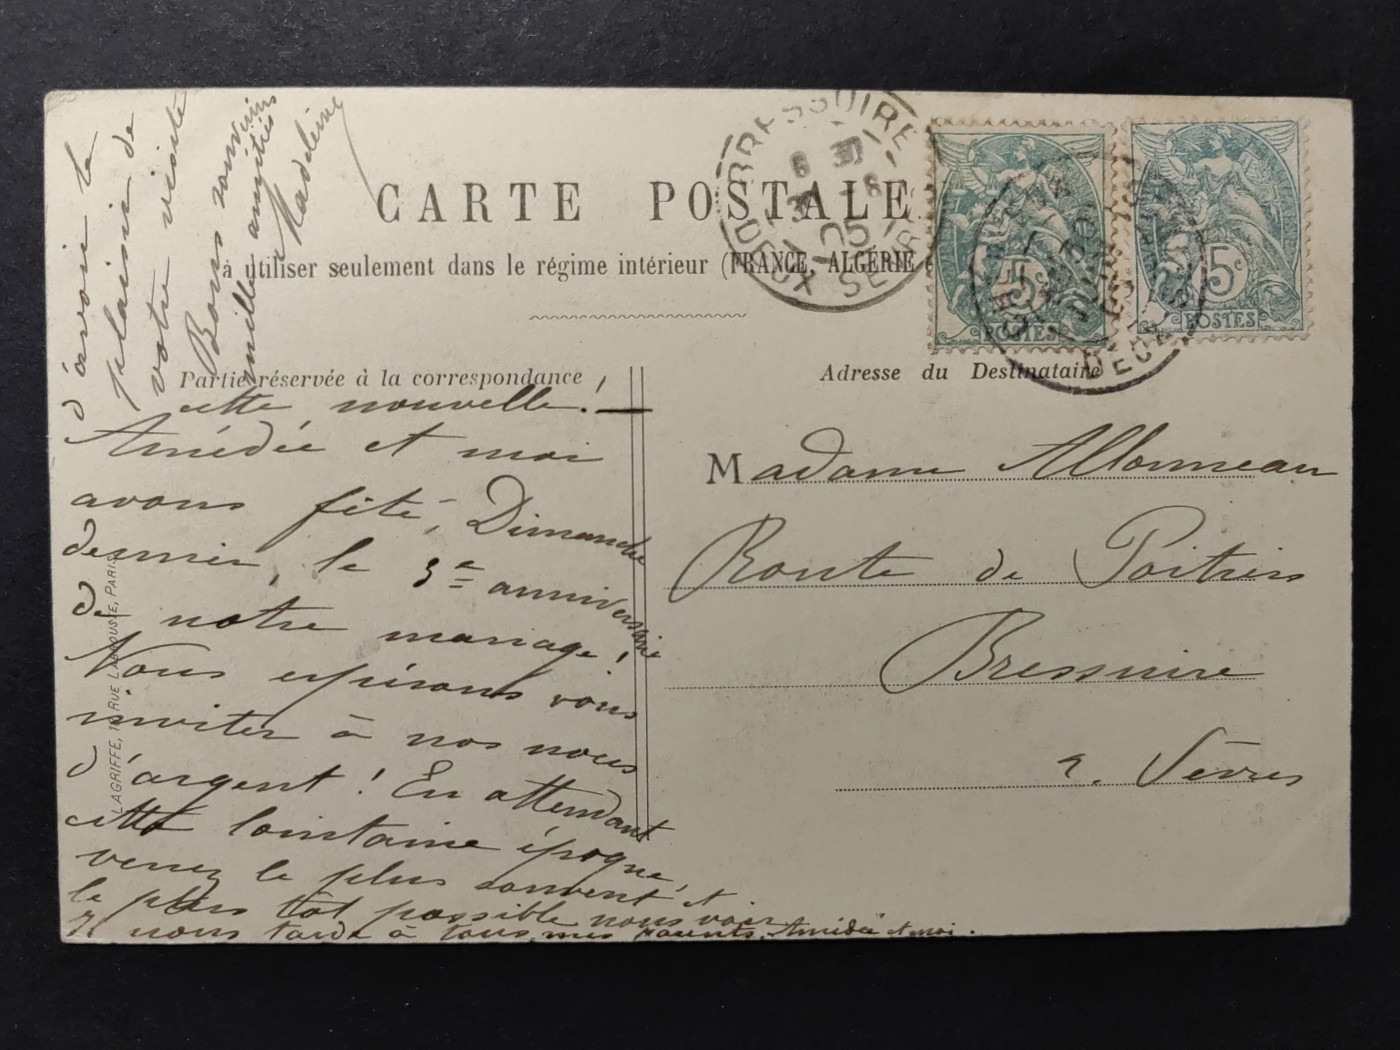 CARTE POSTALE
à utiliser seulement dans le régime intérieur (FRANCE, ALGÉRIE
Partie réservée à la correspondance
Adresse du Destinataire
cette nouvelle! —
Amédée et moi
avons fêté, Dimanche
dernier, le 3e anniversaire
de notre mariage!
Nous espérons vous
inviter à nos noces
d'argent! En attendant
cette lointaine époque,
venez le plus souvent et
le plus tôt possible nous voir
Il nous tarde à tous, mes parents, Amédée et moi.
d'avoir le
plaisir de
votre visite
Bons souvenirs
mille amitiés
Madeleine
Madame Allonneau
Route de Poitiers
Bressuire
2. Sèvres
LAGRIFFE, RUE LABROUSTE, PARIS
BRESSUIRE
DEUX SEVRES
6 30
05
5c
POSTES
5c
POSTES